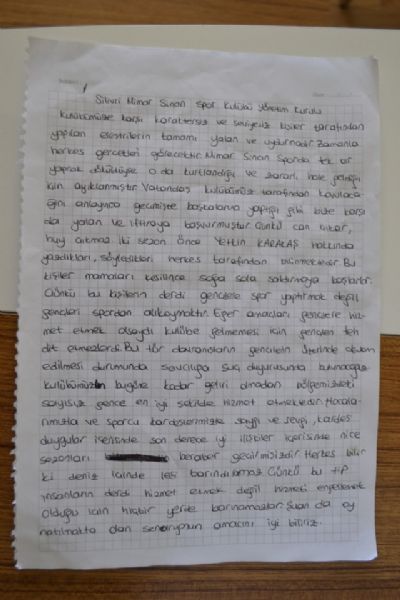 Silivri Mimar Sinan Spor Kulübü Yönetim Kurulu
kulübümüze karşı karaktersiz ve seviyesiz kişiler tarafından
yapılan eleştirilerin tamamı yalan ve uydurmadır. Zamanla
herkes gerçekleri görecektir. Mimar Sinan Sporda tek bir
yaprak döküldüyse o da kurtlandığı ve zararlı hale geldiği
için ayıklanmıştır. Vatandaş kulübümüz tarafından
anlayınca geçmişte başkalarına yaptığı gibi bize karşı
da yalan ve iftiraya başvurmuştur. Çünkü can çıkar,
huy çıkmaz. İki sezon önce YETKİN KARAKAŞ hakkında
yazdıkları, söyledikleri herkes tarafından bilinmektedir. Bu
kişiler mamaları kesilince sağa sola saldırmaya başlarlar.
Çünkü bu kişilerin derdi gençlere spor yaptırmak değil,
gençleri spordan alıkoymaktır. Eğer amaçları gençlere hiz-
met etmek olsaydı kulübe gelmemesi için gençleri teh
dit etmezlerdi. Bu tür davranışların gençlerin üzerinde devam
edilmesi durumunda savcılığa suç duyurusunda bulunacağız
kulübümüzün bugüne kadar getiri olmadan bölgemizdeki
sayısız gence en iyi şekilde hizmet etmektedir. Hocala-
rımızla ve sporcu kardeşlerimizle saygı ve sevgi, kardeş
duygular içerisinde son derece iyi ilişkiler içerisinde nice
sezonları beraber geçirmişizdir. Herkes bilir
ki deniz içinde leş barındırmaz. Çünkü bu tip
insanların derdi hizmet etmek değil hizmeti engellemek
olduğu için hiçbir yerde barınamazlar. Şuan da oy
natılmakta olan senaryonun amacını iyi biliriz.